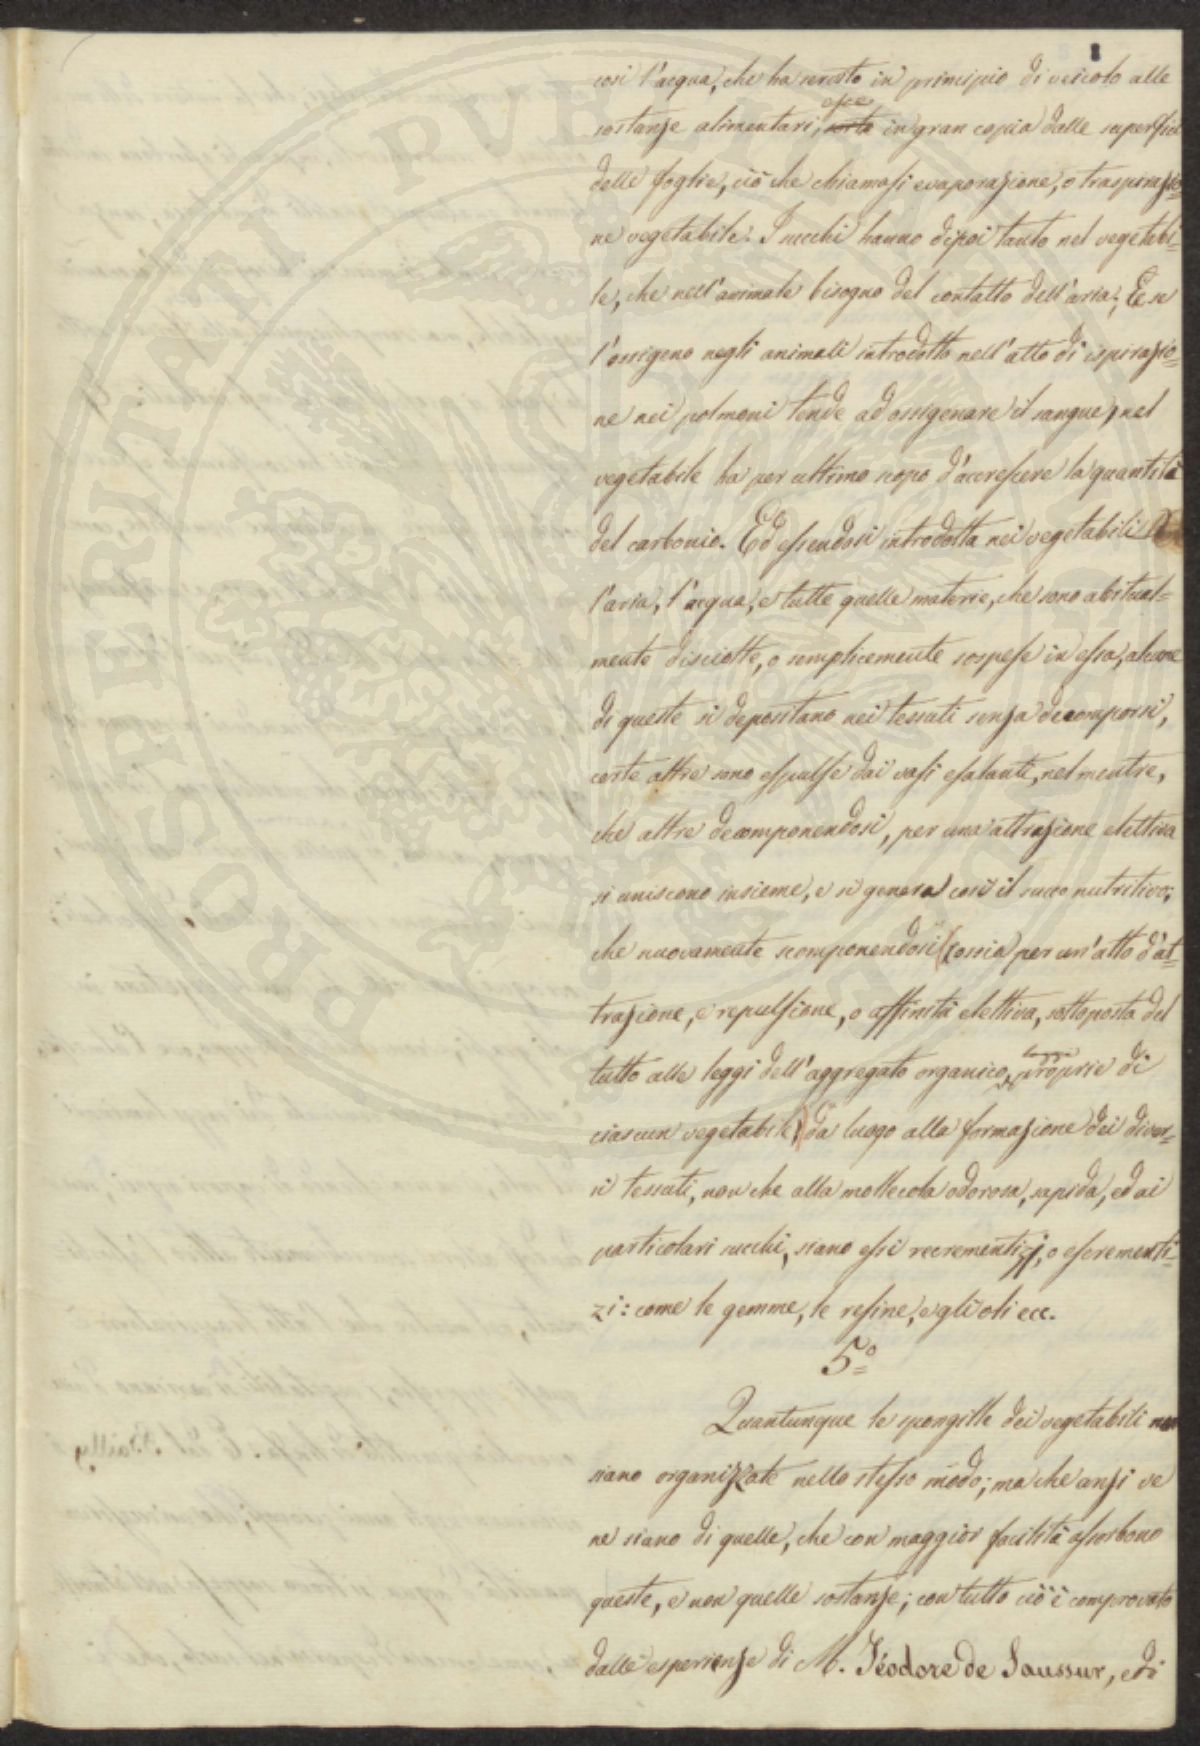 così l'acqua, che ha servito in principio di veicolo alle
sostanze alimentari, esce in gran copia dalle superficie
delle foglie, ciò che chiamasi evaporazione, o traspirazio=
ne vegetabile. I succhi hanno dipoi tanto nel vegetabi=
le, che nell'animale bisogno del contatto dell'aria; E se
l'ossigeno negli animali introdotto nell'atto di ispirazio=
ne nei polmoni tende ad ossigenare il sangue, nel
vegetabile ha per ultimo scopo d'accrescere la quantità
del carbonio. Ed essendosi introdotta nei vegetabili
l'aria, l'acqua, e tutte quelle materie, che sono abitual=
mente disciolte, o semplicemente sospese in essa, alcune
di queste si depositano nei tessuti senza decomporsi,
certe altre sono espulse dai vasi esalanti, nel mentre,
che altre decomponendosi, per una attrazione elettiva
si uniscono insieme, e si genera così il succo nutritivo;
che nuovamente scomponendosi (ossia per un'atto d'at=
trazione, e repulsione, o affinità elettiva, sottoposta del
tutto alle leggi dell'aggregato organico, proprie di
ciascun vegetabile) dà luogo alla formazione dei diver=
si tessuti, non che alla mollecola odorosa, sapida, ed ai
particolari succhi, siano essi recrementizj, o escrementi=
zi: come le gomme, le resine, e gli oli ecc.
5º
Quantunque le spongille dei vegetabili non
siano organizzate nello stesso modo; ma che anzi ve
ne siano di quelle, che con maggior facilità assorbono
queste, e non quelle sostanze; con tutto ciò è comprovato
dalle esperienze di M. Téodore de Saussur, e di